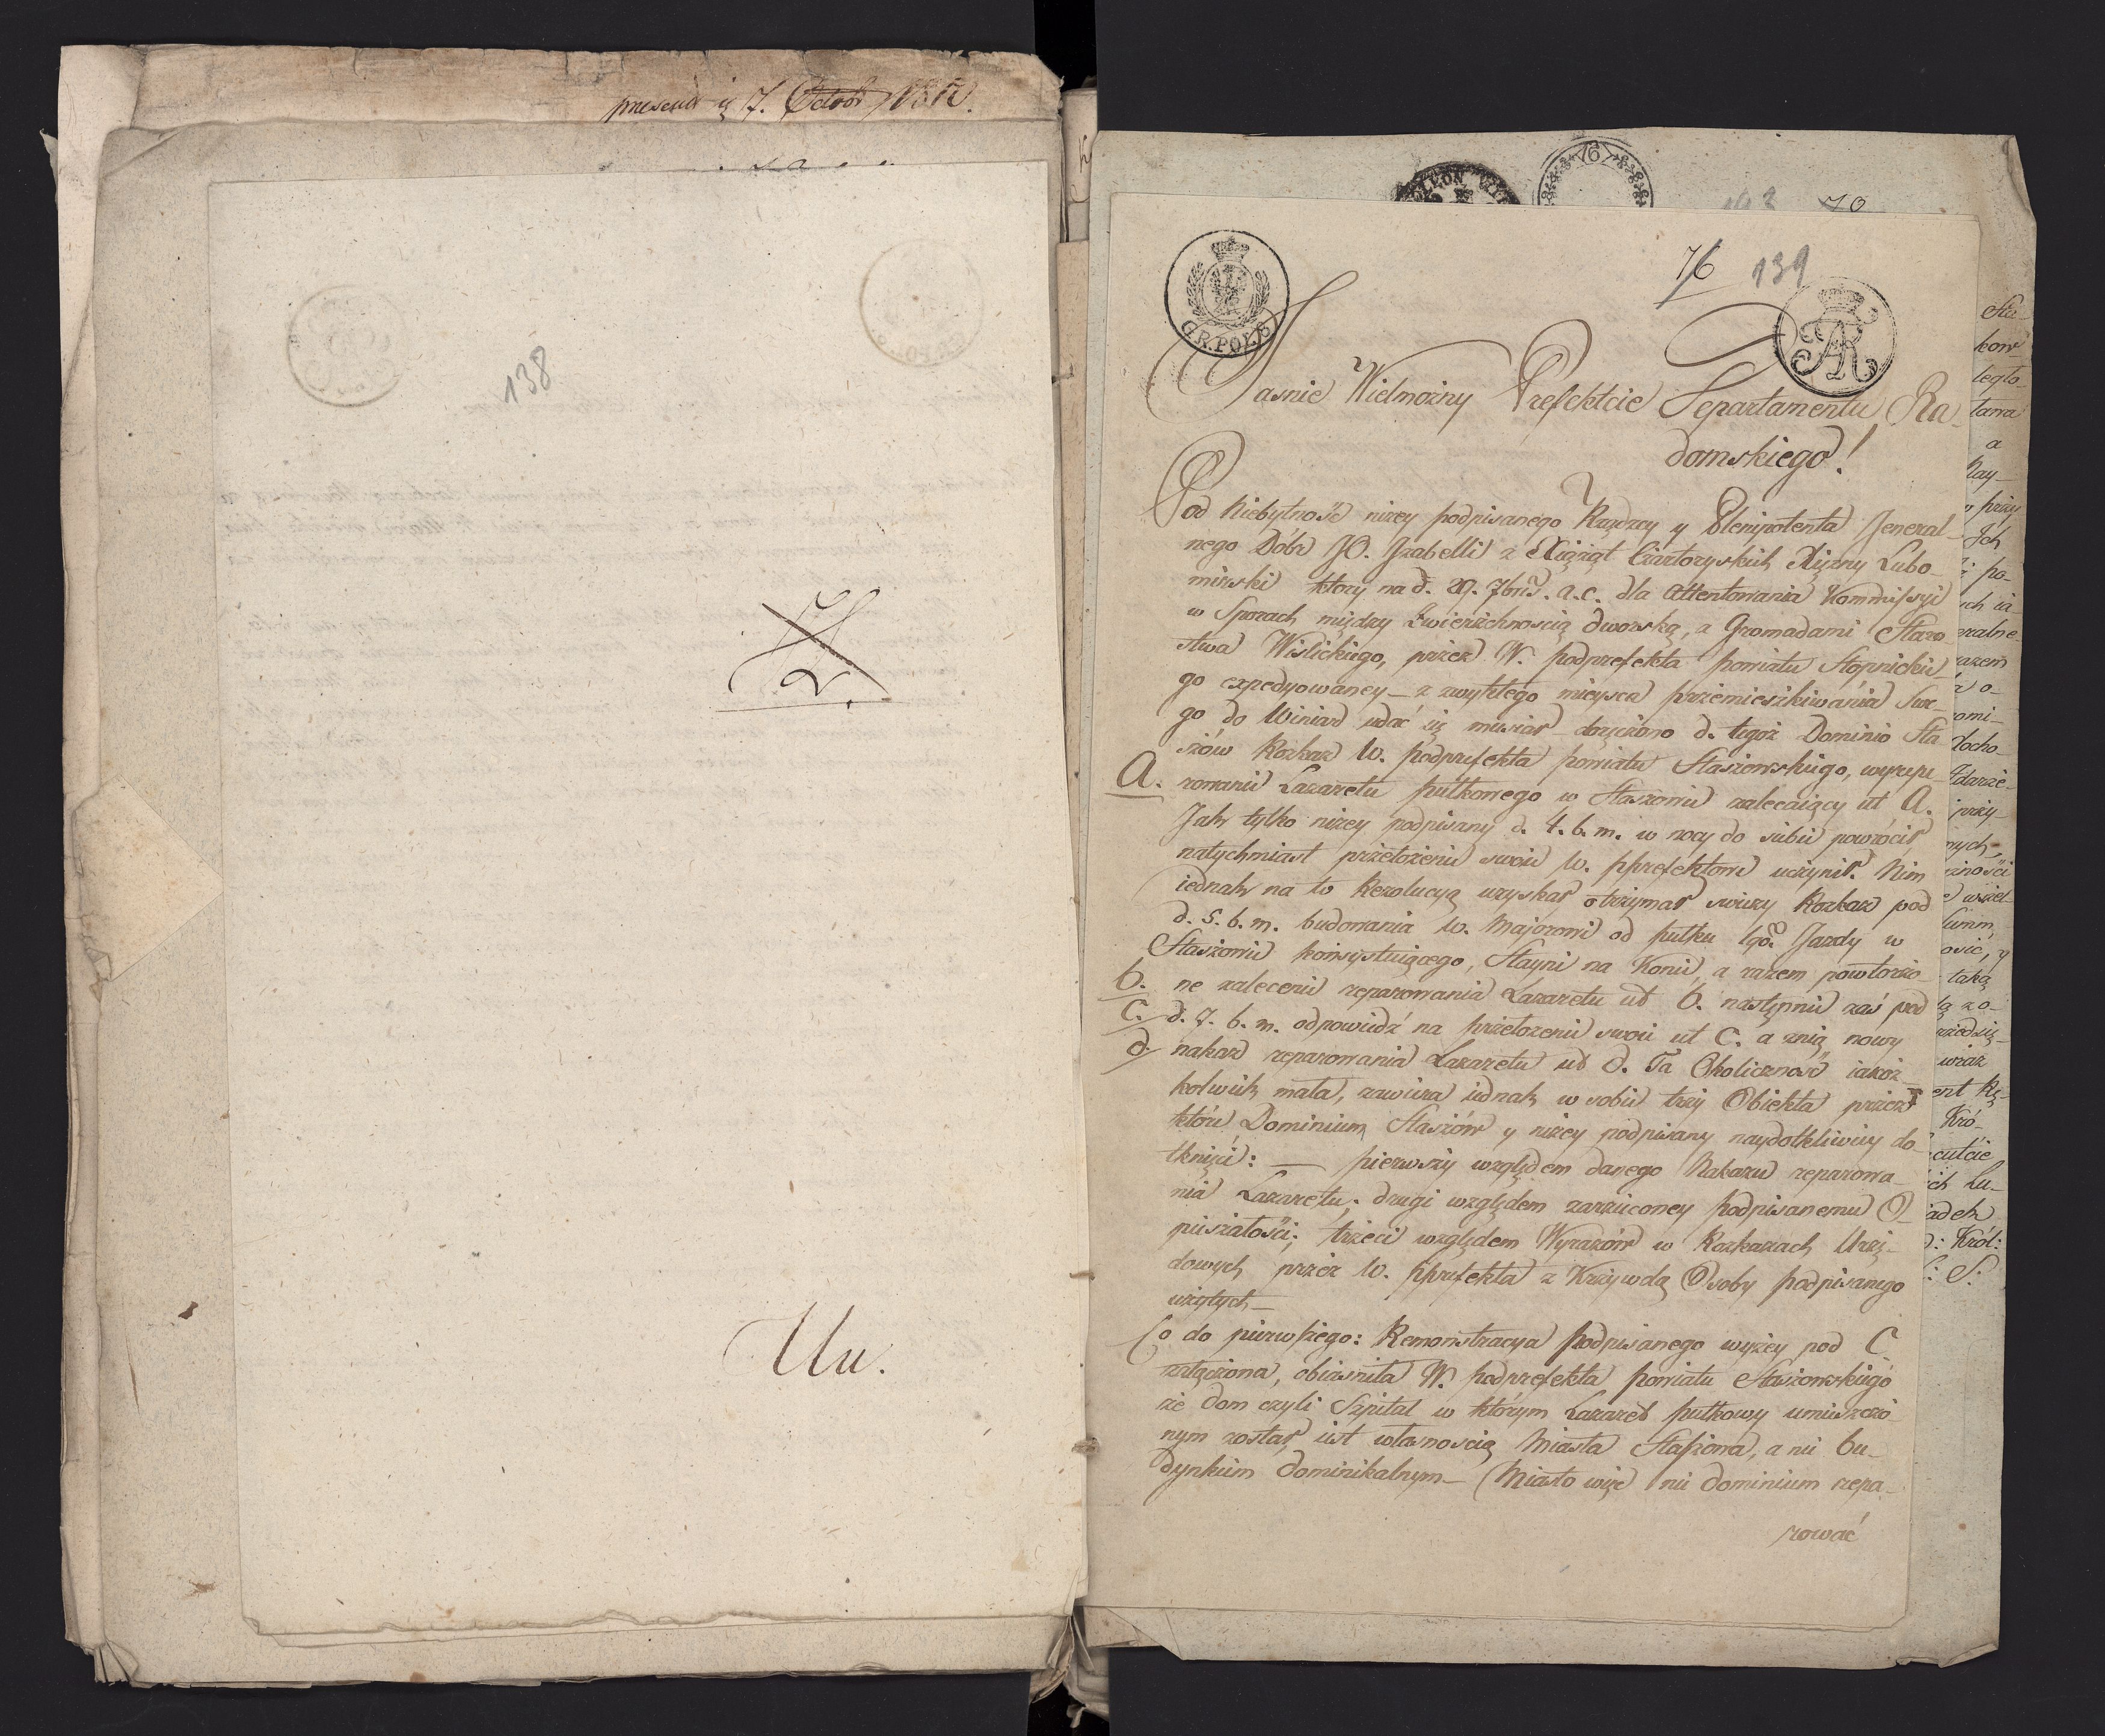 7. Octobr 1812.
138
Uu.
76 139
GR. POL. 8
Jasnie Wielmożny Prefekcie Departamentu Ra-
domskiego!
Pod niebytność niżey podpisanego Rządzcy y Plenipotenta Jeneral-
nego Dóbr JO. Jzabelli z Xiążąt Czartoryskich Xiężny Lubo-
mirski ktory na d. 29. 7bris. a.c. dla attentowania Kommissyi
w Sporach między Zwierzchnością dworską, a Gromadami Staro
stwa Wislickiego, przez W. podprefekta powiatu Stopnickie-
go expedyowaney – z zwykłego mieysca przemieszkiwania Swe-
go do Winiar udać się musiał – doręczono d. tegoż Dominio Sta
szów Rozkaz W. podprefekta powiatu Staszowskiego, wyrepe-
A. rowanie Lazaretu pułkowego w Staszowie zalecaiący ut A.
Jak tylko niżey podpisany d. 4. b. m. w nocy do siebie powrócił
natychmiast przełożenie swoie W. pprefektowi uczynił. Nim
iednak na to Rezolucyą uzyskał otrzymał swieży Rozkaz pod
d. 5. b. m. budowania W. Majorowi od pułku 1go. Jazdy w
Staszowie konsystuiącego, Stayni na Konie, a razem powtorzo
b. ne zalecenie reparowania Lazaretu ut b. następnie zaś pod
C. d. 7. b. m. odpowiedź na przełożenie swoie ut C. a znią nowy
d. nakaz reparowania Lazaretu ut d. Ta Okoliczność iakoż-
kolwiek mała, zawiera iednak w sobie trzy Obiekta przez
które Dominium Staszów y niżey podpisany naydotkliwiey do-
tknięci: — pierwszy względem danego Nakazu reparowa-
nia Lazaretu; drugi względem zarzuconey podpisanemu O-
pieszałości; trzeci względem Wyrazów w Rozkazach Urzę-
dowych przez W. pprefekta z Krzywdą Osoby podpisanego
użytych —
Co do pierwszego: Remonstracya podpisanego wyżey pod C
załączona, obiasniła W. podprefekta powiatu Staszowskiego
że dom czyli Szpital w którym Lazaret pułkowy umieszczo
nym został iest własnoscią Miasta Staszowa, a nie bu-
dynkiem dominikalnym – Miasto więc nie dominium repa-
rować